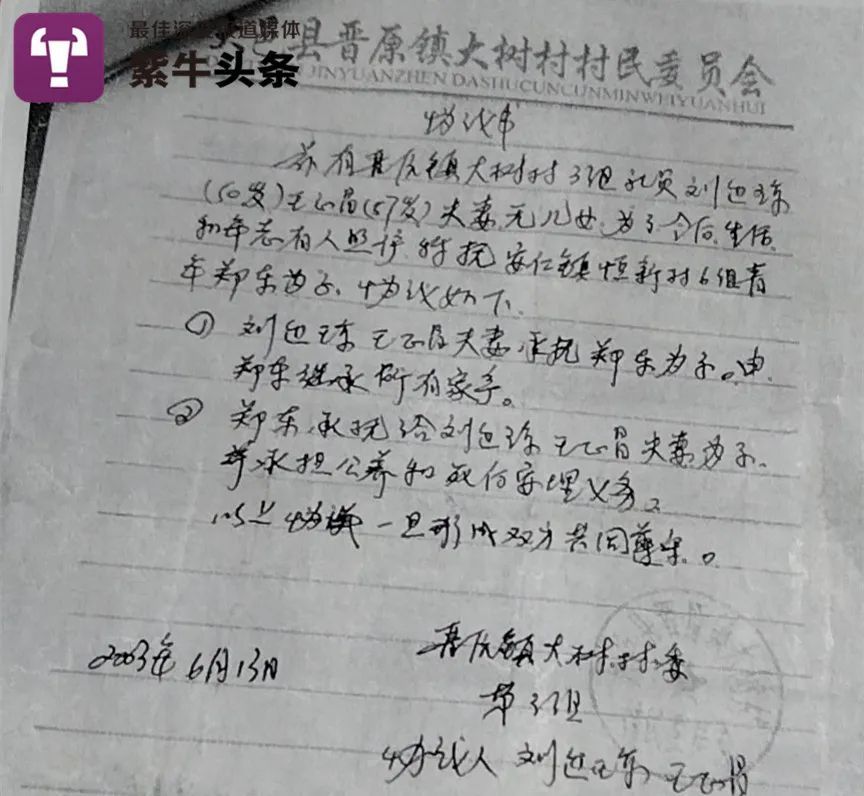 最佳深度报道媒体
紫牛头条
县晋原镇大树村村民委员会
JINYUANZHEN DASHUCUNCUNMINWEIYUANHUI
协议书
兹有晋原镇大树村3组社员刘迎琼
(50岁)王正昌(57岁)夫妻无儿女,为了今后生活
和年老有人照护,特抚安仁镇恒新村6组青
年郑东为子,协议如下.
① 刘迎琼王正昌夫妻承抚郑东为子。由
郑东继承所有家产。
② 郑东承抚给刘迎琼王正昌夫妻为子.
并承担公养和死后安埋义务。
以上协议一旦形成双方共同遵守。
2003年6月13日
晋原镇大树村委
第3组
协议人 刘迎琼 王正昌